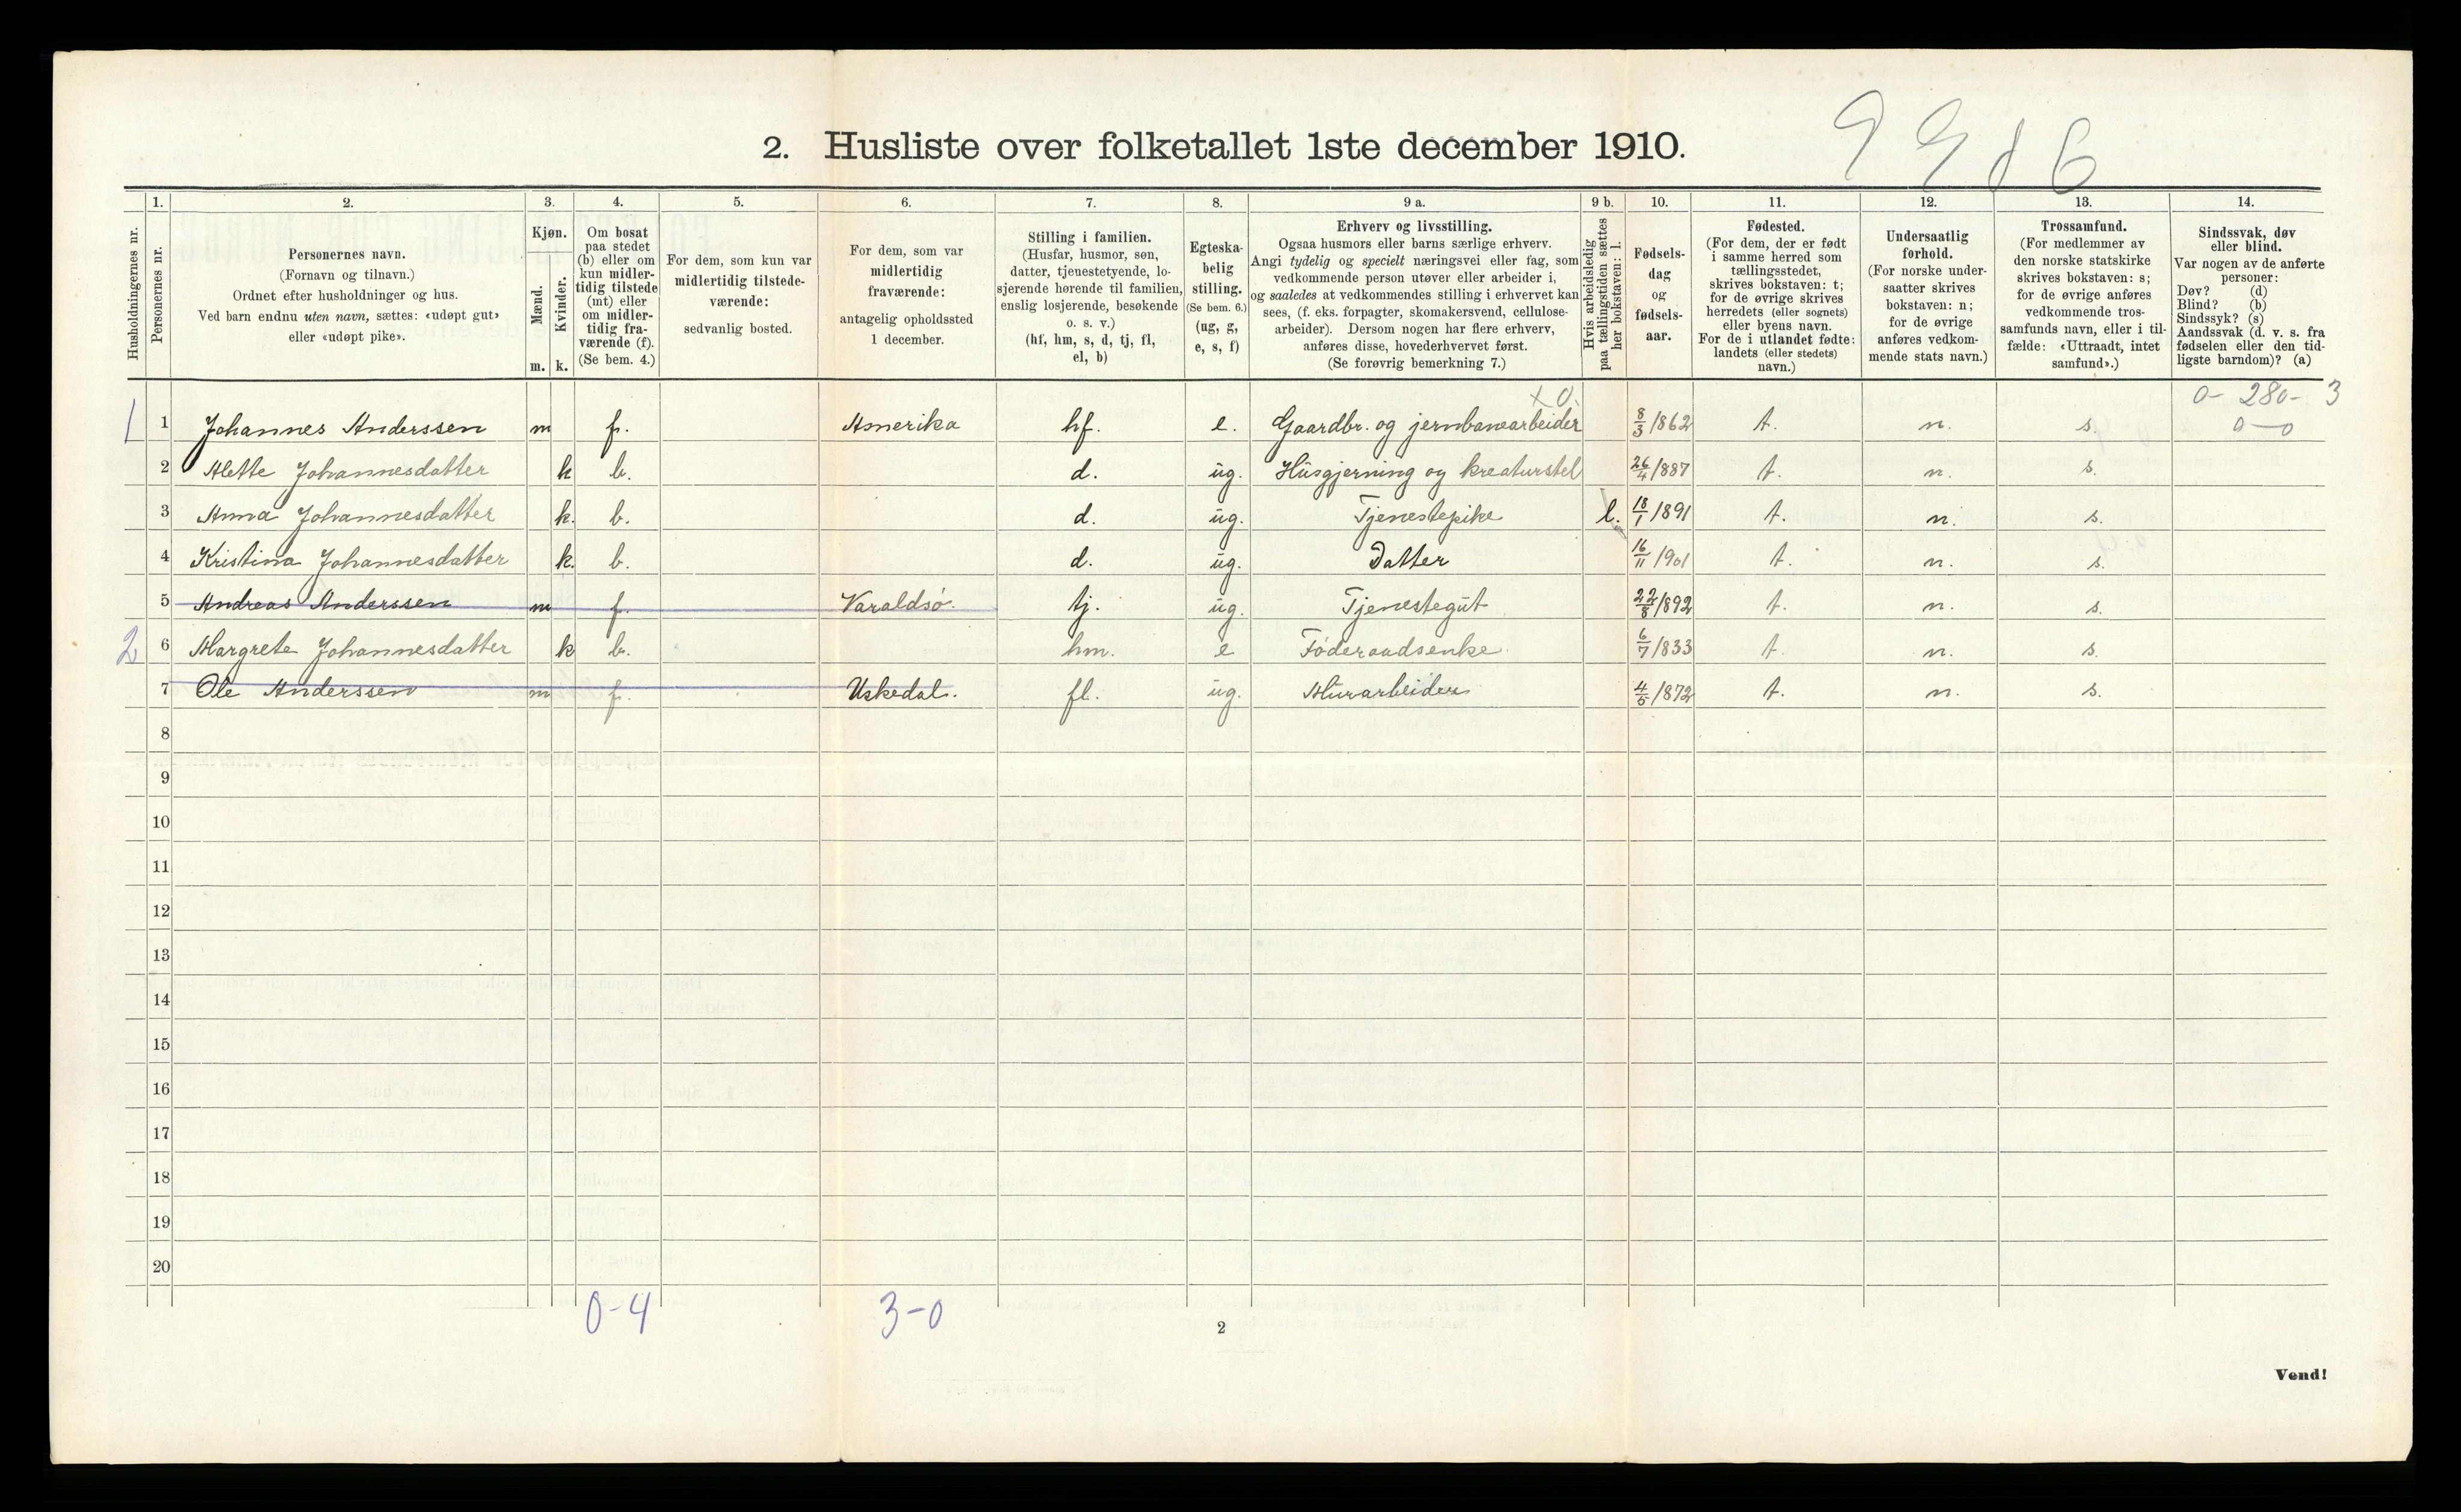 2. Husliste over folketallet 1ste december 1910.
1. 2. 3. 4. 5. 6. 7. 8. 9 a. 9 b. 10. 11. 12. 13. 14.
Husholdningernes nr.
Personernes nr.
Personernes navn.
(Fornavn og tilnavn.)
Ordnet efter husholdninger og hus.
Ved barn endnu uten navn, sættes: «udøpt gut»
eller «udøpt pike».
Kjøn.
Mænd.
Kvinder.
m. k.
Om bosat
paa stedet
(b) eller om
kun midler-
tidig tilstede
(mt) eller
om midler-
tidig fra-
værende (f).
(Se bem. 4.)
For dem, som kun var
midlertidig tilstede-
værende:
sedvanlig bosted.
For dem, som var
midlertidig
fraværende:
antagelig opholdssted
1 december.
Stilling i familien.
(Husfar, husmor, søn,
datter, tjenestetyende, lo-
sjerende hørende til familien,
enslig losjerende, besøkende
o. s. v.)
(hf, hm, s, d, tj, fl,
el, b)
Egteska-
belig
stilling.
(Se bem. 6.)
(ug, g,
e, s, f)
Erhverv og livsstilling.
Ogsaa husmors eller barns særlige erhverv.
Angi tydelig og specielt næringsvei eller fag, som
vedkommende person utøver eller arbeider i,
og saaledes at vedkommendes stilling i erhvervet kan
sees, (f. eks. forpagter, skomakersvend, cellulose-
arbeider). Dersom nogen har flere erhverv,
anføres disse, hovederhvervet først.
(Se forøvrig bemerkning 7.)
Hvis arbeidsledig
paa tællingstiden sættes
her bokstaven: l.
Fødsels-
dag
og
fødsels-
aar.
Fødested.
(For dem, der er født
i samme herred som
tællingsstedet,
skrives bokstaven: t;
for de øvrige skrives
herredets (eller sognets)
eller byens navn.
For de i utlandet fødte:
landets (eller stedets)
navn.)
Undersaatlig
forhold.
(For norske under-
saatter skrives
bokstaven: n;
for de øvrige
anføres vedkom-
mende stats navn.)
Trossamfund.
(For medlemmer av
den norske statskirke
skrives bokstaven: s;
for de øvrige anføres
vedkommende tros-
samfunds navn, eller i til-
fælde: «Uttraadt, intet
samfund».)
Sindssvak, døv
eller blind.
Var nogen av de anførte
personer:
Døv? (d)
Blind? (b)
Sindssyk? (s)
Aandssvak (d. v. s. fra
fødselen eller den tid-
ligste barndom)? (a)
x 0. 0 - 280 - 3
1 1 Johannes Anderssen m f. Amerika hf. e. Gaardbr. og jernbanearbeider 8/3/862 t. n. s. 0-0
2 Alette Johannesdatter k b. d. ug. Husgjerning og kreaturstel 26/4/887 t. n. s.
3 Anna Johannesdatter k. b. d. ug. Tjenestepike l. 18/1/891 t. n. s.
4 Kristina Johannesdatter k. b. d. ug. Datter 16/11/901 t. n. s.
5 Andreas Anderssen m f. Varaldsö. tj. ug. Tjenestegut 22/8/892 t. n. s.
2 6 Margrete Johannesdatter k b. hm. e Föderaadsenke 6/7/833 t. n. s.
7 Ole Anderssen m f. Uskedal. fl. ug. Murarbeider 4/5/872 t. n. s.
8
9
10
11
12
13
14
15
16
17
18
19
20
0-4 3-0
2
Vend!